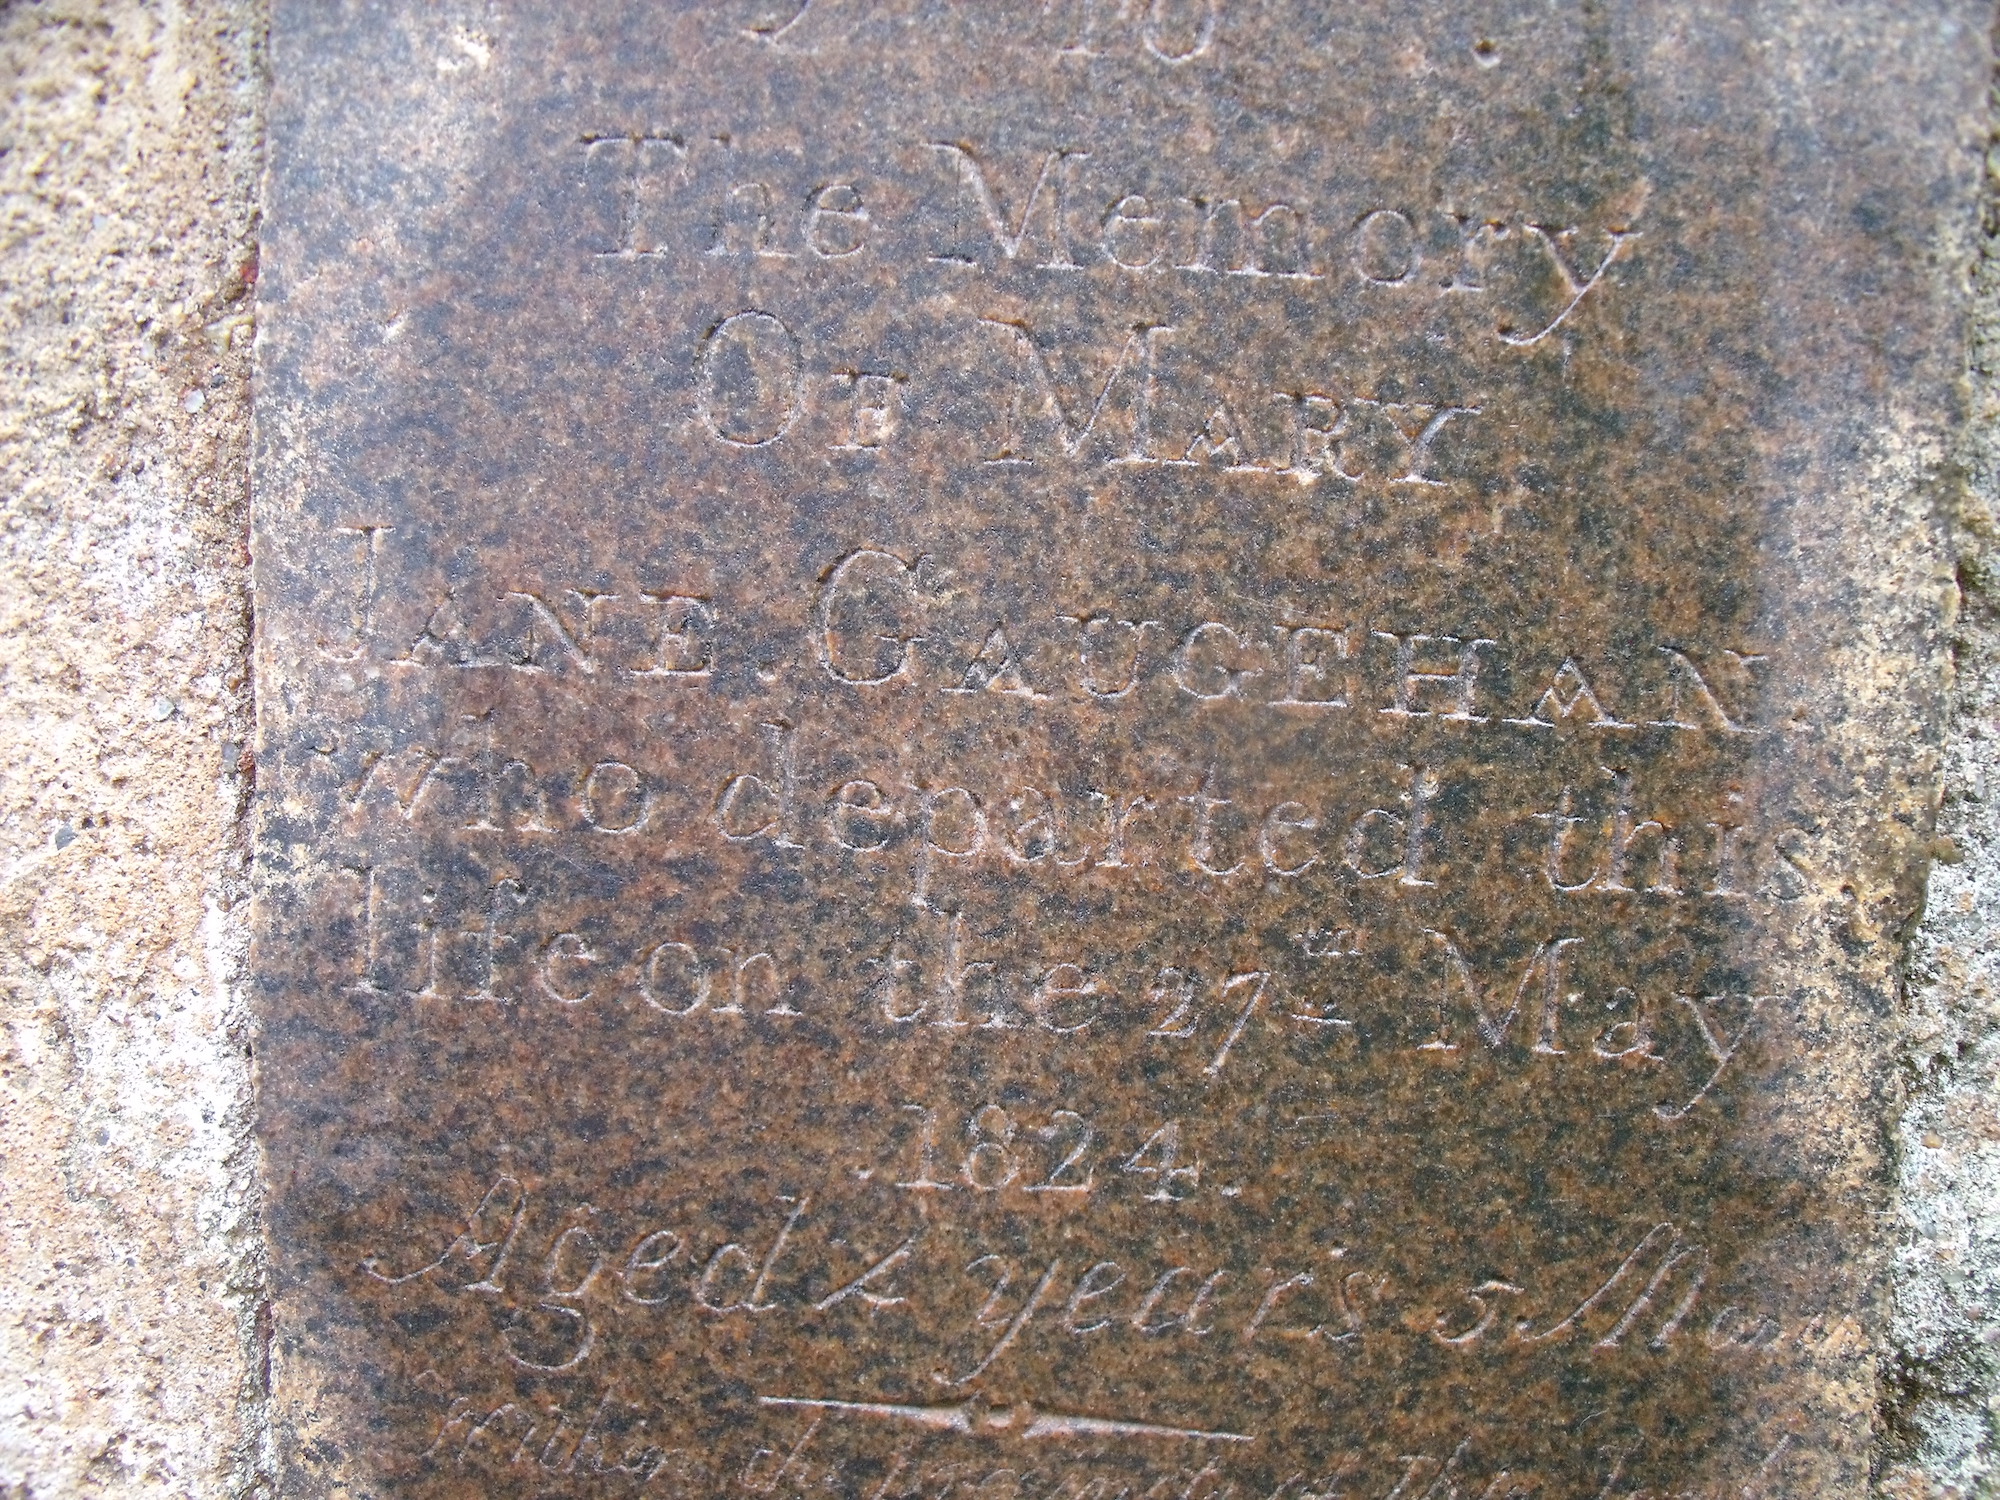 The Memory
OF MARY
JANE. GAUGEHAN
who departed this
life on the 27th May
.1824.
Aged 2 years 5 Mos